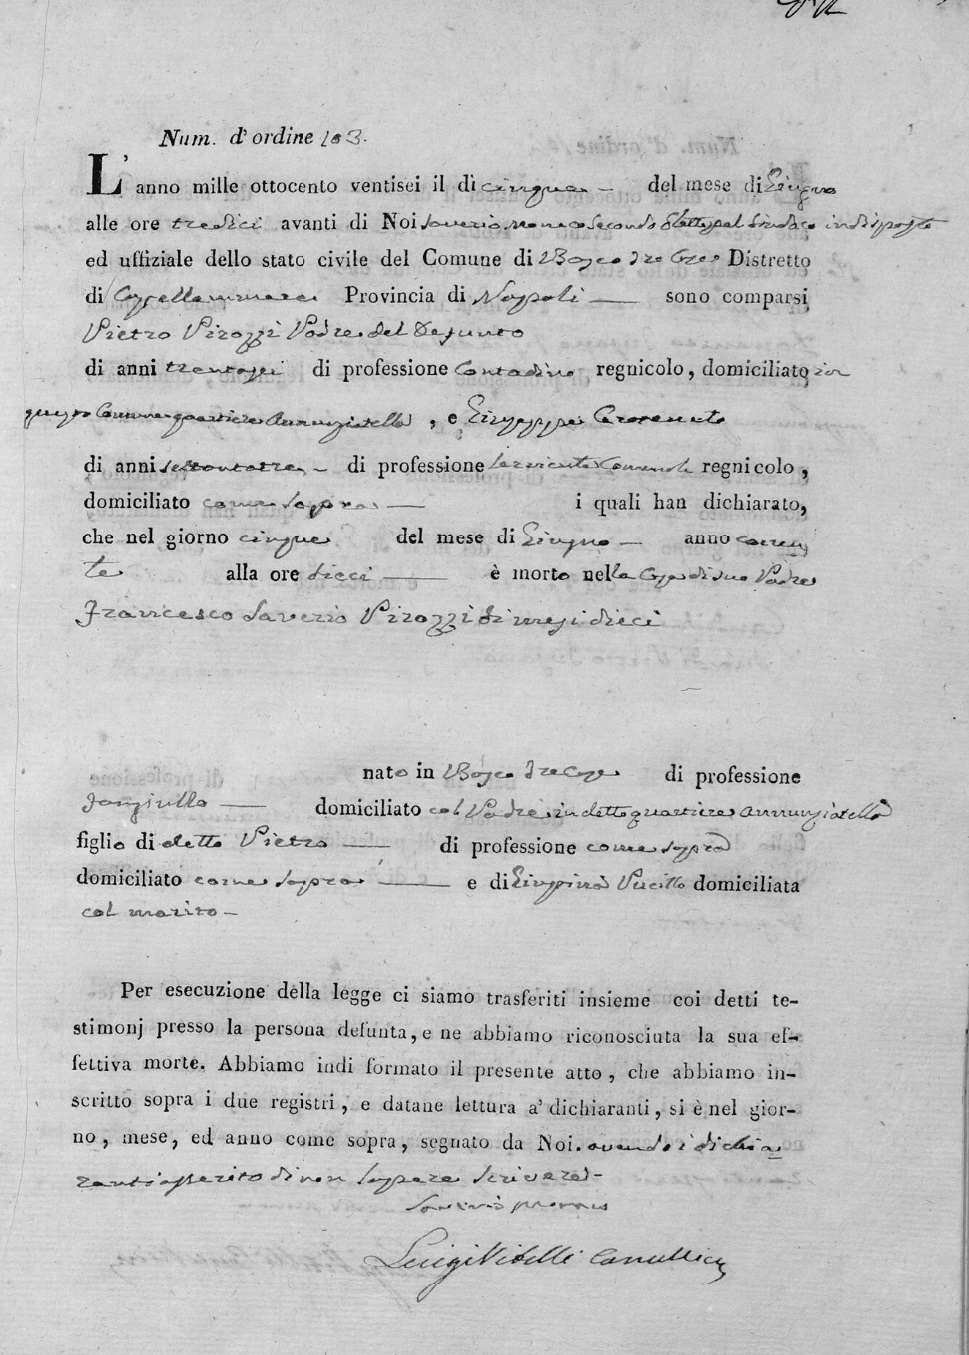 Num. d'ordine 103.
L'anno mille ottocento ventisei il dì cinque — del mese di Giugno
alle ore tredici avanti di Noi Saverio Monaco Secondo Eletto pel Sindaco indisposto
ed uffiziale dello stato civile del Comune di Bosco Tre Case Distretto
di Castellammare Provincia di Napoli — sono comparsi
Pietro Pirozzi Padre del Defunto
di anni trentasei di professione Contadino regnicolo, domiciliato in
questo Comune quartiere Annunziatella, e Giuseppe Caravento
di anni settantatre — di professione Serviente Comunale regnicolo,
domiciliato come sopra — i quali han dichiarato,
che nel giorno cinque del mese di Giugno — anno corren
te alla ore dieci — è morto nella Casa di suo Padre
Francesco Saverio Pirozzi di mesi dieci
nato in Bosco Tre Case di professione
Fanciullo — domiciliato col Padre in detto quartiere Annunziatella
figlio di detto Pietro — di professione come sopra
domiciliato come sopra — e di Giuseppa Pucillo domiciliata
col marito —
Per esecuzione della legge ci siamo trasferiti insieme coi detti te-
stimonj presso la persona defunta, e ne abbiamo riconosciuta la sua ef-
fettiva morte. Abbiamo indi formato il presente atto, che abbiamo in-
scritto sopra i due registri, e datane lettura a' dichiaranti, si è nel gior-
no, mese, ed anno come sopra, segnato da Noi. avendo i dichia
ranti asserito di non sapere scrivere —
Saverio Monaco
Luigi Vitelli